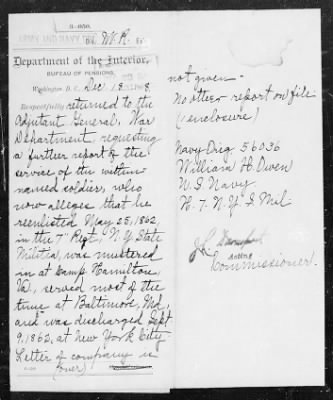 3-050.
Ex. M. R. Ex.
Department of the Interior,
BUREAU OF PENSIONS,
Washington, D. C., Dec 18
Respectfully returned to the
Adjutant General, War
Department, requesting
a further report of the
service of the within
named soldier, who
now alleges that he
reenlisted May 25, 1862,
in the 7" Regt, N.Y. State
Militia, was mustered
in at Camp Hamilton,
Va., served most of the
time at Baltimore, Md,
and was discharged Sept
9, 1862, at New York City
Letter of company is
(over)
not given.
No other report on file
(1 enclosure)
Navy Orig 56036
William H. Owen
U.S. Navy
7. N.Y. S. Mil
Acting
Commissioner.